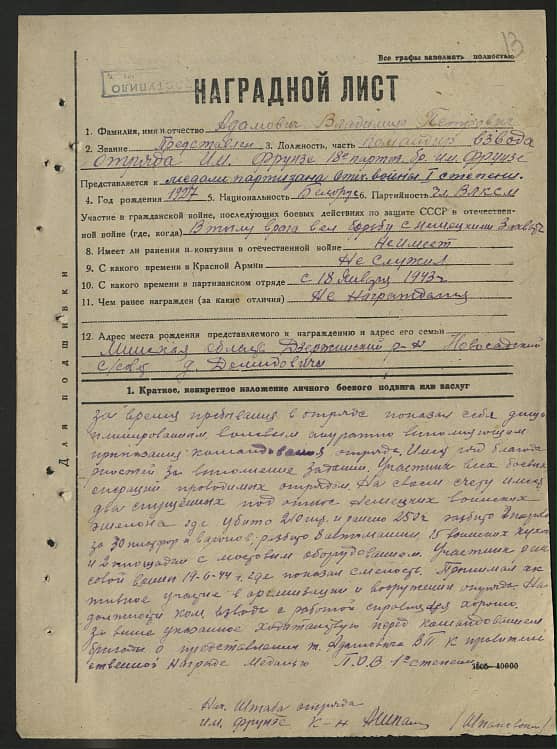 13
Все графы заполнять полностью
ПОСТУПИЛО
НАГРАДНОЙ ЛИСТ
1. Фамилия, имя и отчество Адамович Владимир Петрович
2. Звание Представлен 3. Должность, часть командир взвода
отряда им. Фрунзе 18 парт. бр. им. Фрунзе
Представляется к медали партизана отеч. войны I степени.
4. Год рождения 1927 5. Национальность Белорус 6. Партийность чл ВЛКСМ
Участие в гражданской войне, последующих боевых действиях по защите СССР и отечествен-
ной войне (где, когда) В тылу врага вел борьбу с немецкими захват
8. Имеет ли ранения и контузии в отечественной войне Не имеет
9. С какого времени в Красной Армии Не служил
10. С какого времени в партизанском отряде с 18 января 1943г
11. Чем ранее награжден (за какие отличия) Не награждался
12. Адрес места рождения представляемого к награждению и адрес его семьи
Минская область Дзержинский р-н Новосадский
с/сов д. Демидовичи
Для подшивки
1. Краткое, конкретное изложение личного боевого подвига или заслуг
за время пребывания в отряде показал себя дисци
плинированным волевым аккуратно выполняющим
приказания командования отряда. Имел ряд благода
рностей за выполнение заданий. Участник всех боевых
операций проводимых отрядом. На своем счету имеет
два спущенных под откос немецких воинских
эшелона где убито 210 и ранено 250 разбито 2 паров
за 30 платформ и вагонов, разбито 8 автомашин, 15 воинских кухонь
и 2 площадки с мостовым оборудованием. Участник рель
совой войны 19-6-44г. где показал смелость. Принимал ак
тивное участие в организации и вооружении отряда. На
должности ком. взвода с работой справлялся хорошо.
За выше указанное ходатайствую перед командованием
бригады о представлении т. Адамовича В П к правител
ственной награде Медалью П.О.В 1ой степени.
3505-40000
Нач. Штаба отряда
им. Фрунзе к-н